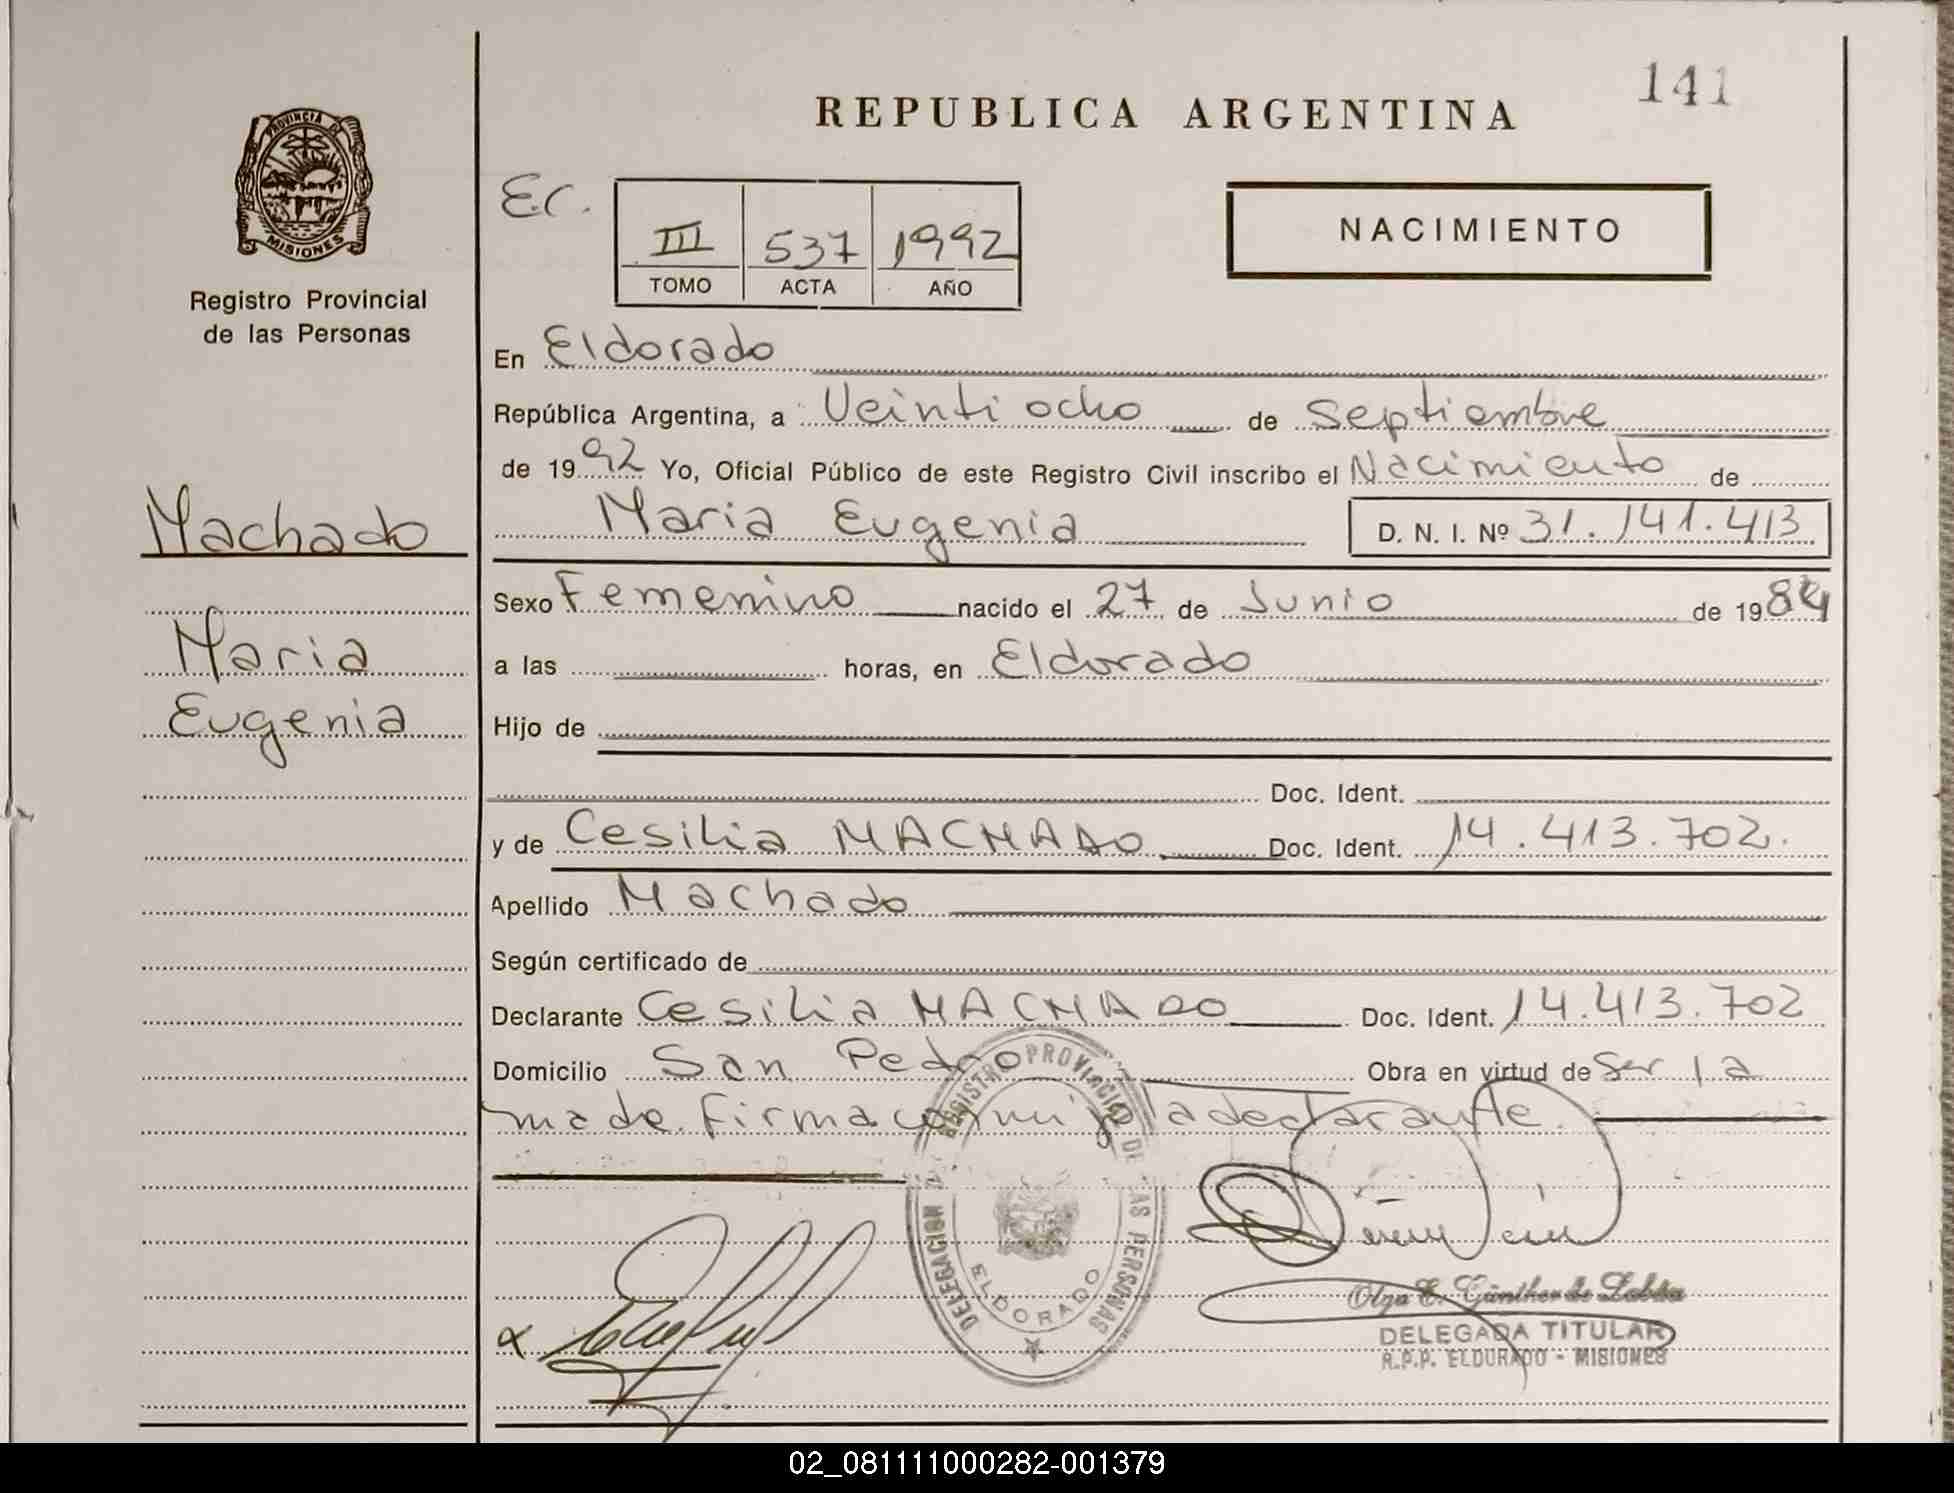 141
REPUBLICA ARGENTINA
PROVINCIA DE
MISIONES
Registro Provincial
de las Personas
E.C.
III 537 1992
TOMO ACTA AÑO
NACIMIENTO
En Eldorado
República Argentina, a Veintiocho de Septiembre
de 1992 Yo, Oficial Público de este Registro Civil inscribo el Nacimiento de
Machado
Maria Eugenia D. N. I. Nº 31.141.413
Sexo Femenino nacido el 27 de Junio de 1984
Maria
a las horas, en Eldorado
Eugenia
Hijo de
Doc. Ident.
y de Cesilia MACHADO Doc. Ident. 14.413.702.
Apellido Machado
Según certificado de
Declarante Cesilia MACHADO Doc. Ident. 14.413.702
Domicilio San Pedro Obra en virtud de Ser la
made. firma commigo la declarante.
DELEGACION REGISTRO PROVINCIAL DE LAS PERSONAS
ELDORADO
Olga E. Günther de
DELEGADA TITULAR
R.P.P. ELDORADO - MISIONES
02_081111000282-001379